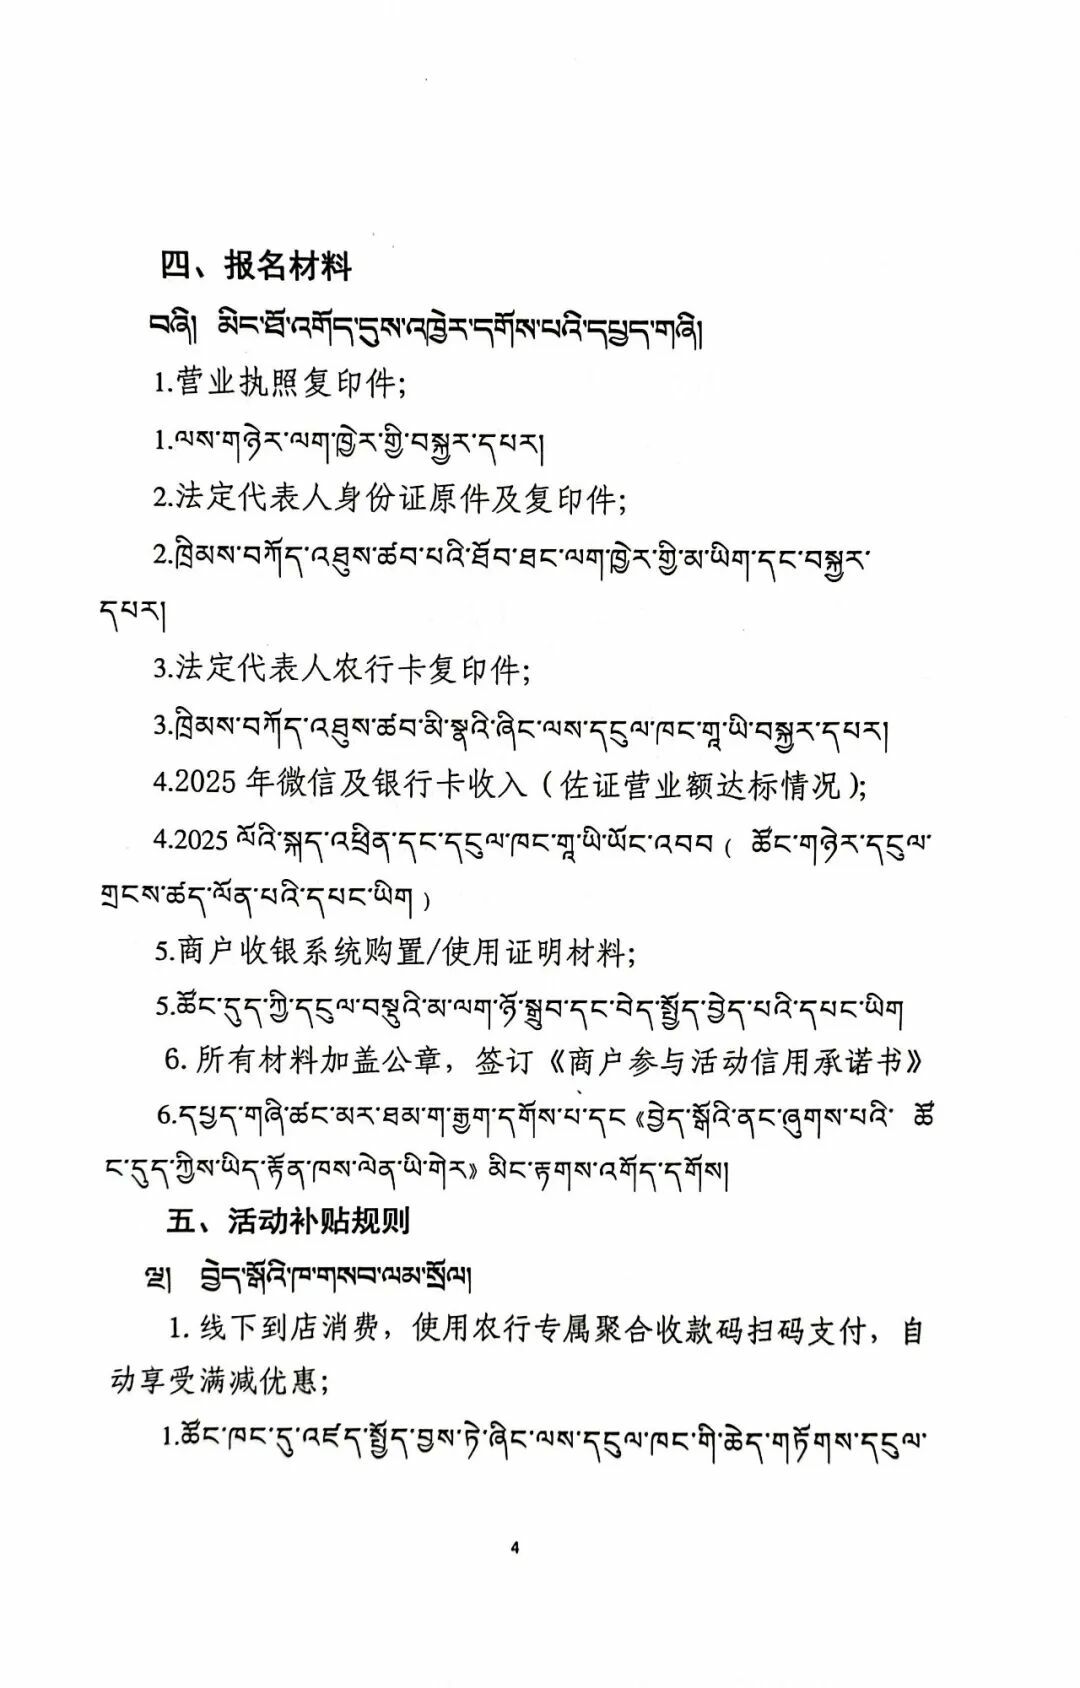 四、报名材料
བཞི། མིང་ཐོ་འགོད་དུས་འཁྱེར་དགོས་པའི་དཔྱད་གཞི།
1.营业执照复印件；
1.ལས་གཉེར་ལག་ཁྱེར་གྱི་བསྐྱར་དཔར།
2.法定代表人身份证原件及复印件；
2.ཁྲིམས་བཀོད་འཐུས་ཚབ་པའི་ཐོབ་ཐང་ལག་ཁྱེར་གྱི་མ་ཡིག་དང་བསྐྱར་
དཔར།
3.法定代表人农行卡复印件；
3.ཁྲིམས་བཀོད་འཐུས་ཚབ་མི་སྣའི་ཞིང་ལས་དངུལ་ཁང་ཀཱ་ཡི་བསྐྱར་དཔར།
4.2025 年微信及银行卡收入（佐证营业额达标情况）；
4.2025 ལོའི་སྐད་འཕྲིན་དང་དངུལ་ཁང་ཀཱ་ཡི་ཡོང་འབབ（ ཚོང་གཉེར་དངུལ་
གྲངས་ཚད་ལོན་པའི་དཔང་ཡིག）
5.商户收银系统购置/使用证明材料；
5.ཚོང་དུད་ཀྱི་དངུལ་བསྡུའི་མ་ལག་ཉོ་སྒྲུབ་དང་བེད་སྤྱོད་བྱེད་པའི་དཔང་ཡིག
6. 所有材料加盖公章，签订《商户参与活动信用承诺书》
6.དཔྱད་གཞི་ཚང་མར་ཐམ་ག་རྒྱག་དགོས་པ་དང《བྱེད་སྒོའི་ནང་ཞུགས་པའི་ ཚོ
ང་དུད་ཀྱིས་ཡིད་རྟོན་ཁས་ལེན་ཡི་གེར》མིང་རྟགས་འགོད་དགོས།
五、活动补贴规则
ལྔ། བྱེད་སྒོའི་ཁ་གསབ་ལམ་སྲོལ།
1. 线下到店消费，使用农行专属聚合收款码扫码支付，自
动享受满减优惠；
1.ཚོང་ཁང་དུ་འཛད་སྤྱོད་བྱས་ཏེ་ཞིང་ལས་དངུལ་ཁང་གི་ཆེད་གཏོགས་དངུལ་
4